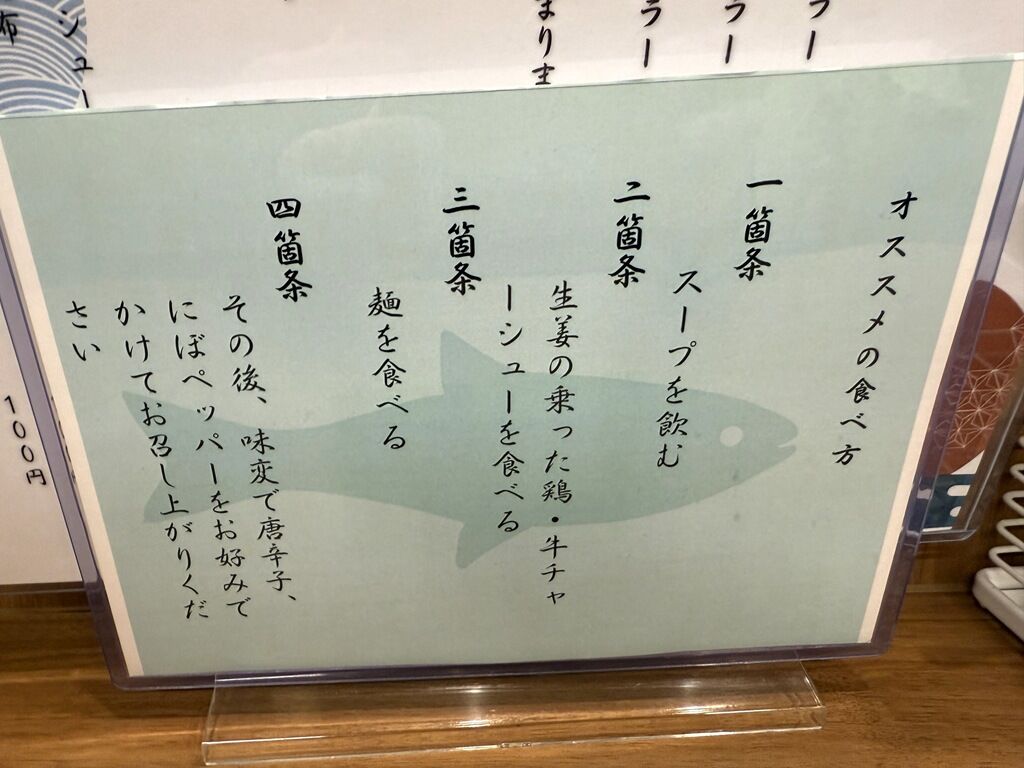 オススメの食べ方
一箇条
スープを飲む
二箇条
生姜の乗った鶏・牛チャ
ーシューを食べる
三箇条
麺を食べる
四箇条
その後、味変で唐辛子、
にぼペッパーをお好みで
かけてお召し上がりくだ
さい
ラー
ラー
ラー
まりま
シュー
布
100円